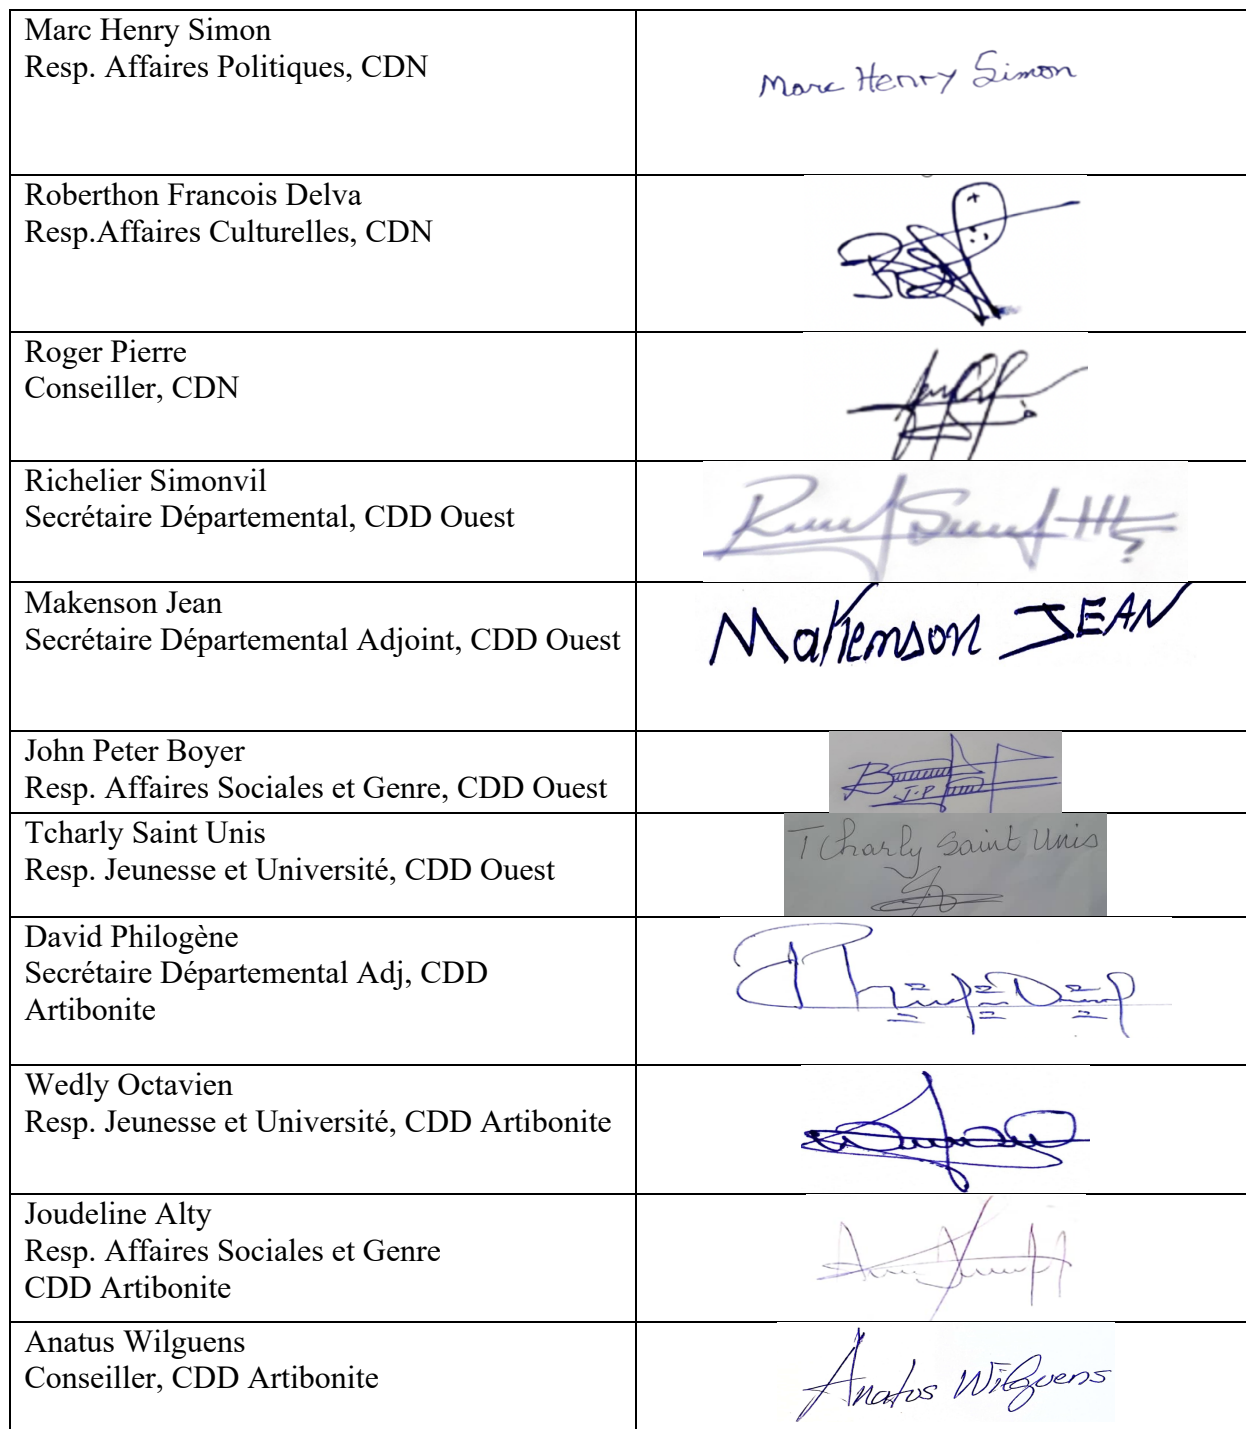 Marc Henry Simon
Resp. Affaires Politiques, CDN
Marc Henry Simon
Roberthon Francois Delva
Resp.Affaires Culturelles, CDN
Roger Pierre
Conseiller, CDN
Richelier Simonvil
Secrétaire Départemental, CDD Ouest
Makenson Jean
Secrétaire Départemental Adjoint, CDD Ouest
Makenson JEAN
John Peter Boyer
Resp. Affaires Sociales et Genre, CDD Ouest
J.P
Tcharly Saint Unis
Resp. Jeunesse et Université, CDD Ouest
TCharly Saint Unis
David Philogène
Secrétaire Départemental Adj, CDD
Artibonite
Wedly Octavien
Resp. Jeunesse et Université, CDD Artibonite
Joudeline Alty
Resp. Affaires Sociales et Genre
CDD Artibonite
Anatus Wilguens
Conseiller, CDD Artibonite
Anatus Wilguens